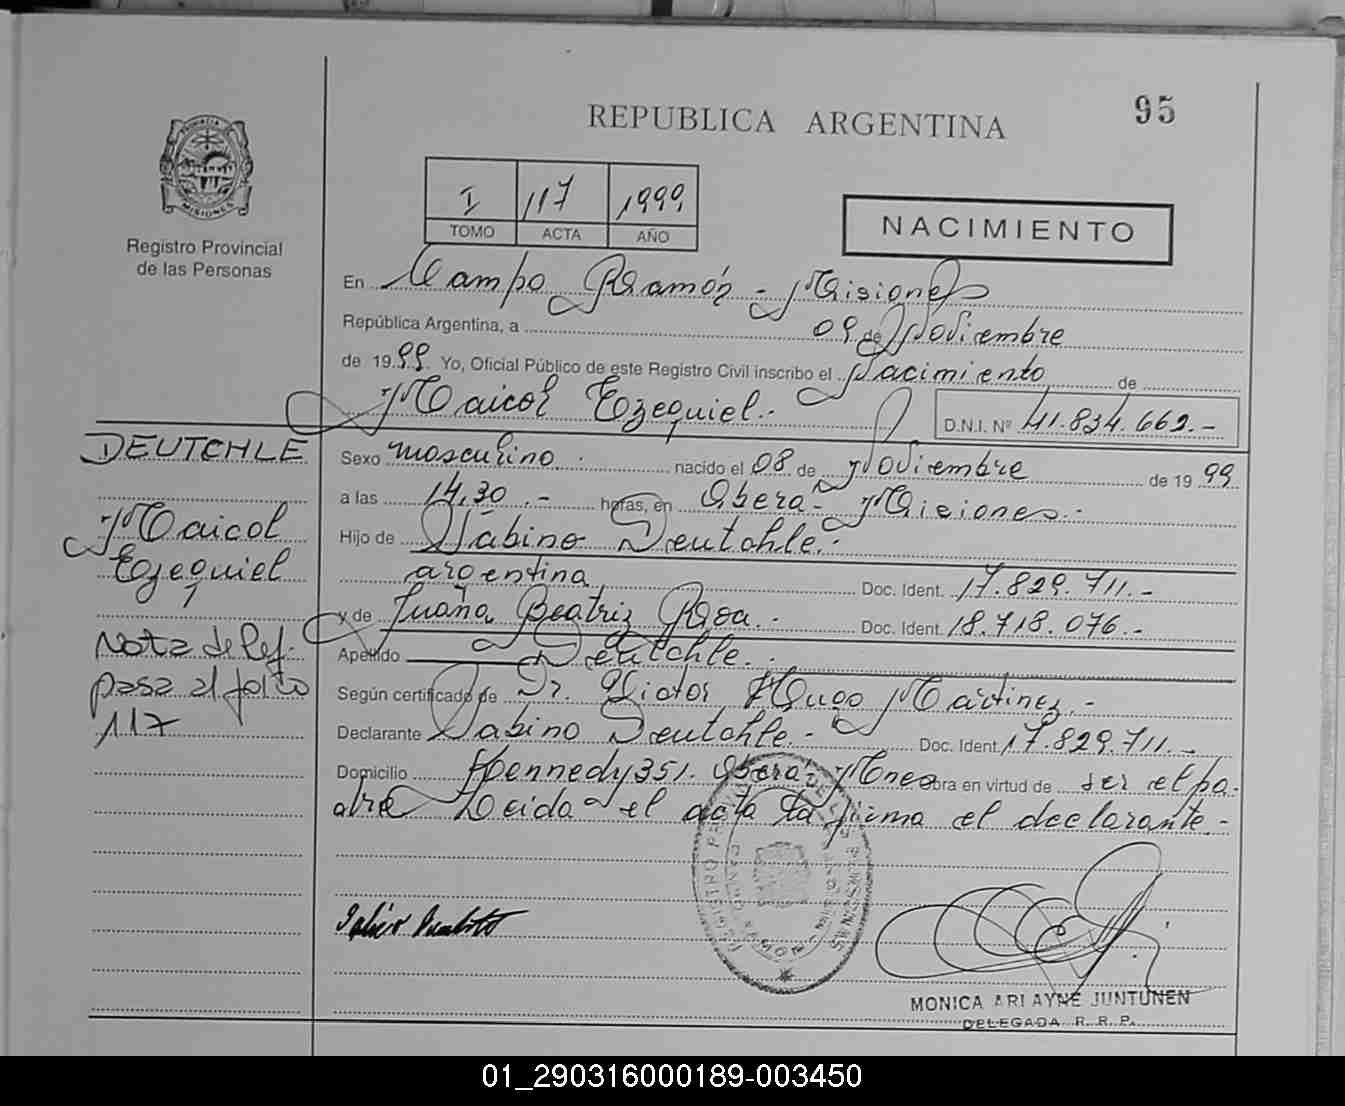 95
REPUBLICA ARGENTINA
PROVINCIA DE
MISIONES
Registro Provincial
de las Personas
I 117 1999
TOMO ACTA AÑO
NACIMIENTO
En Campo Ramón - Misiones
República Argentina, a 09 de Noviembre
de 1999 Yo, Oficial Público de este Registro Civil inscribo el Nacimiento de
Maicol Ezequiel.- D.N.I. Nº 41.834.662.-
Sexo masculino nacido el 08 de Noviembre de 1999
a las 14,30.- horas, en Oberá - Misiones.-
Hijo de Sabino Deutchle.-
argentina Doc. Ident. 17.829.711.-
y de Juana Beatriz Rosa.- Doc. Ident. 18.718.076.-
Apellido Deutchle.-
Según certificado de Dr. Victor Hugo Martinez.-
Declarante Sabino Deutchle.- Doc. Ident. 17.829.711.-
Domicilio Kennedy 351. Oberá, Mnes Obra en virtud de ser el pa-
dre Leida el acta la firma el declarante.-
DEUTCHLE
Maicol
Ezequiel
Nota de Ref.
pasa al folio
117
MONICA ARLAYNE JUNTUNEN
DELEGADA R. R. P.
01_290316000189-003450